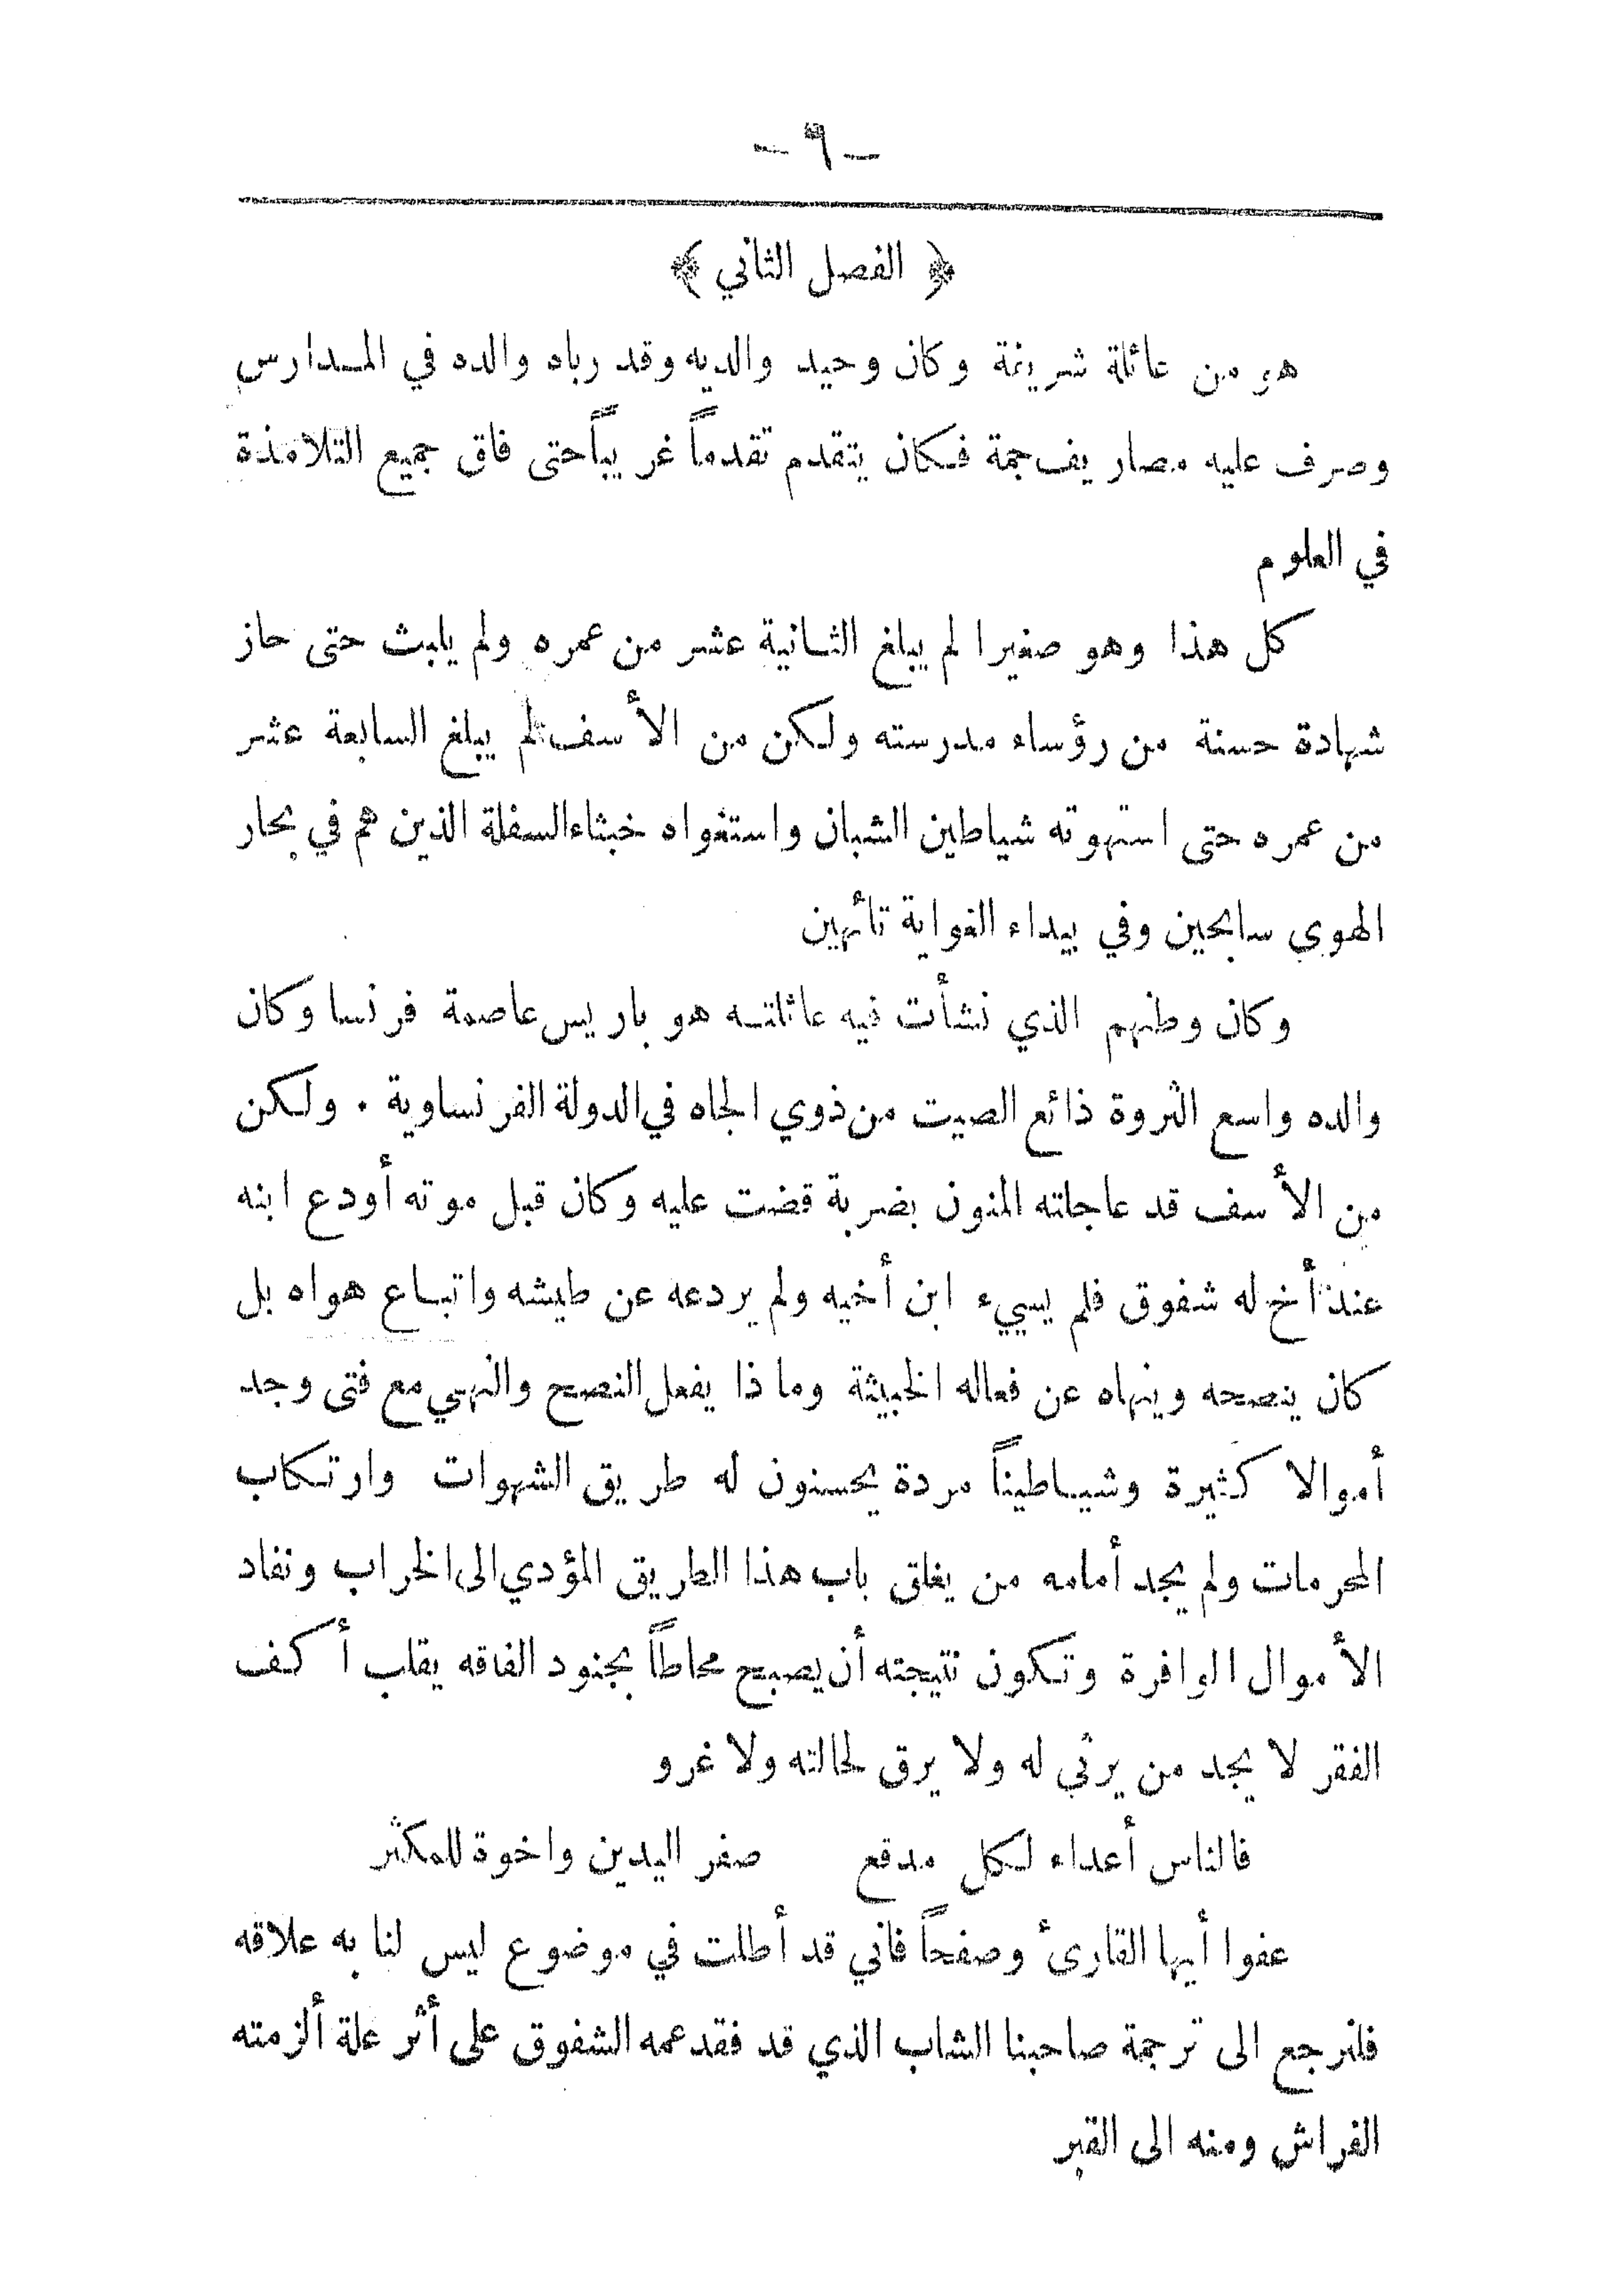 — ٩ —
﴿ الفصل الثاني ﴾
هو من عائلة شريفة وكان وحيد والديه وقد رباه والده في المدارس
وصرف عليه مصاريف جمة فكان يتقدم تقدماً غريباً حتى فاق جميع التلامذة
في العلوم
كل هذا وهو صغيرا لم يبلغ الثانية عشر من عمره ولم يلبث حتى حاز
شهادة حسنة من رؤساء مدرسته ولكن من الأسف لم يبلغ السابعة عشر
من عمره حتى استهوته شياطين الشبان واستغواه خبثاء السفلة الذين هم في بحار
الهوى سابحين وفي بيداء الغواية تائهين
وكان وطنهم الذي نشأت فيه عائلته هو باريس عاصمة فرنسا وكان
والده واسع الثروة ذائع الصيت من ذوي الجاه في الدولة الفرنساوية . ولكن
من الأسف قد عاجلته المنون بضربة قضت عليه وكان قبل موته أودع ابنه
عند أخ له شفوق فلم يسيء ابن أخيه ولم يردعه عن طيشه واتباع هواه بل
كان ينصحه وينهاه عن فعاله الخبيثة وماذا يفعل النصح والنهي مع فتى وجد
أموالا كثيرة وشياطيناً مردة يحسنون له طريق الشهوات وارتكاب
المحرمات ولم يجد أمامه من يغلق باب هذا الطريق المؤدي الى الخراب ونفاد
الأموال الوافرة وتكون نتيجته أن يصبح محاطاً بجنود الفاقه يقلب أكف
الفقر لا يجد من يرثي له ولا يرق لحالته ولا غرو
فالناس أعداء لكل مدقع صفر اليدين واخوة للمكثر
عفوا أيها القارئ وصفحاً فاني قد أطلت في موضوع ليس لنا به علاقه
فلنرجع الى ترجمة صاحبنا الشاب الذي قد فقد عمه الشفوق على أثر علة ألزمته
الفراش ومنه الى القبر